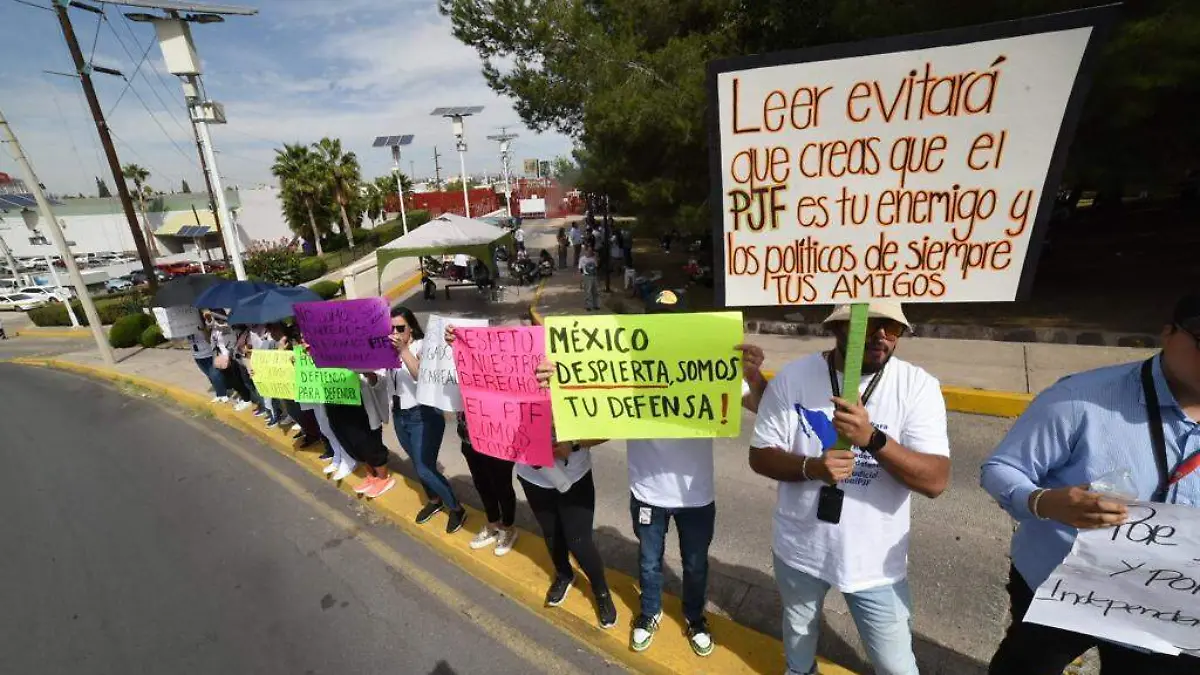 Leer evitará
que creas que el
PJF es tu enemigo y
los políticos de siempre
TUS AMIGOS
MÉXICO
DESPIERTA, SOMOS
TU DEFENSA!
RESPETO
A NUESTROS
DERECHO
EL PJF
SOMOS
TODOS
NO SOMOS
PARA
DEFENDER
Por
y por
Independenc